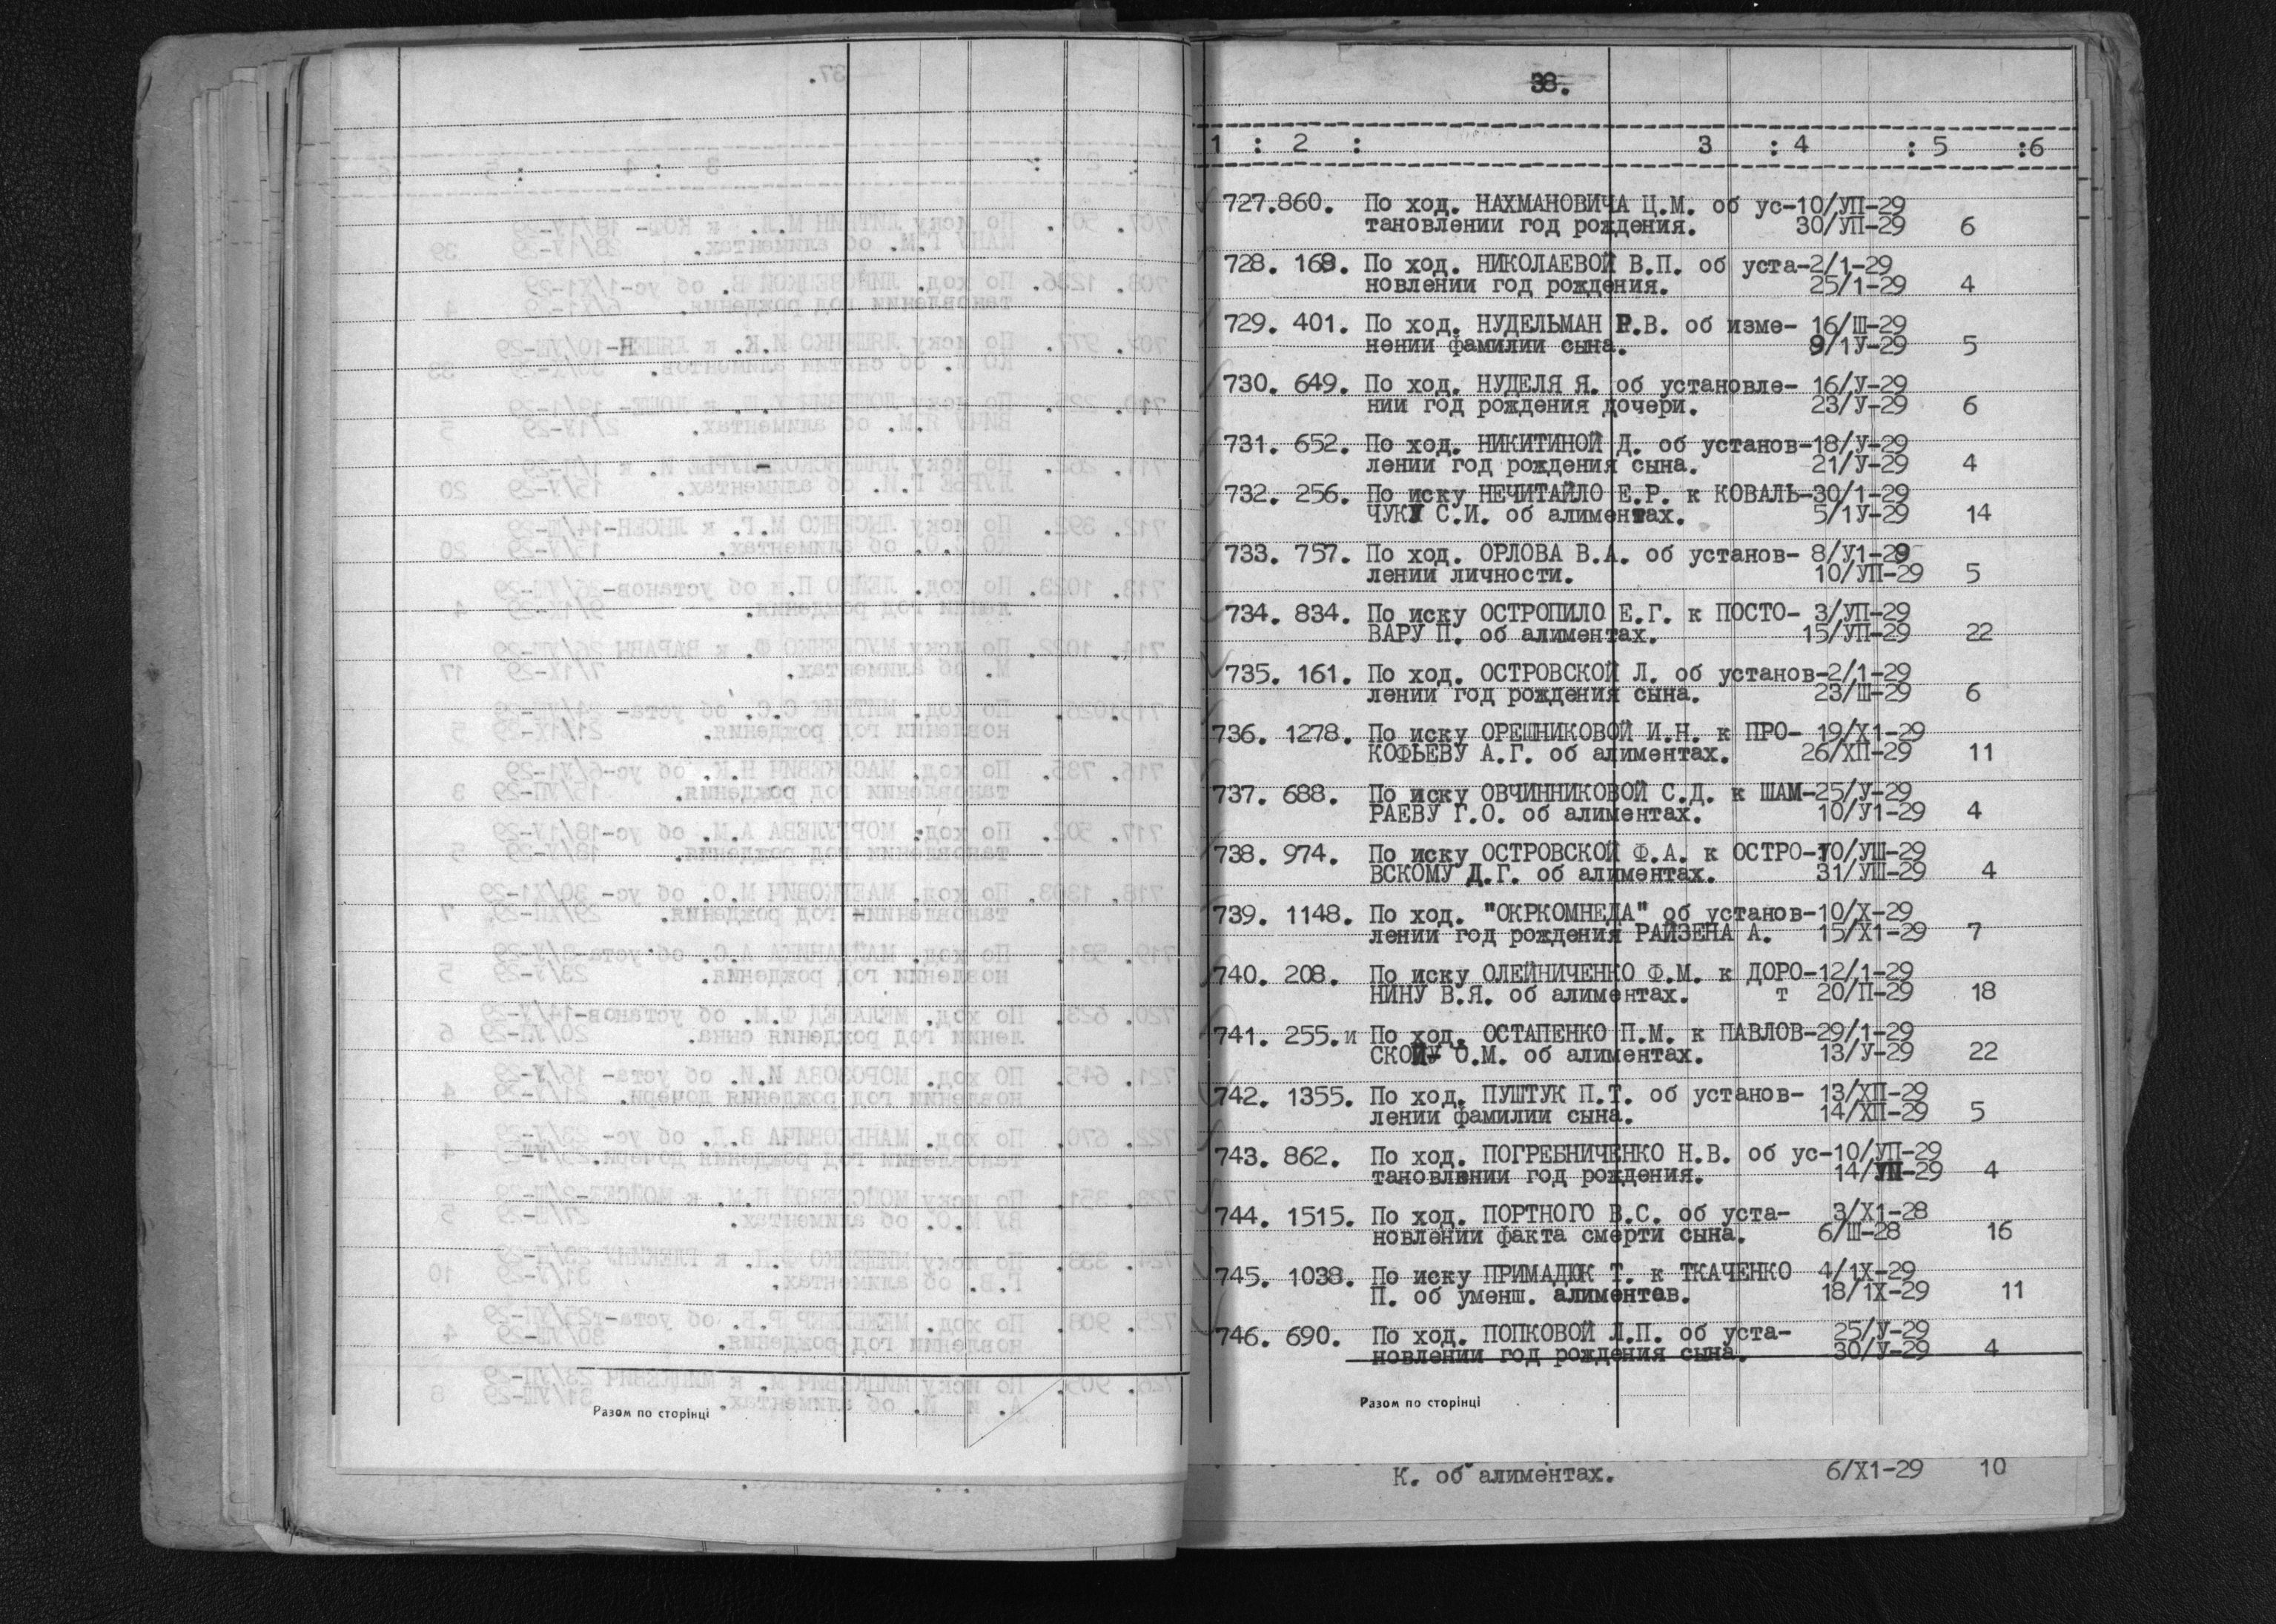 Разом по сторінці
38.
1 : 2 : 3 : 4 : 5 :6
727.860. По ход. НАХМАНОВИЧА Ц.М. об ус-10/УП-29
тановлении год рождения. 30/УП-29 6
728. 169. По ход. НИКОЛАЕВОЙ В.П. об уста-2/1-29
новлении год рождения. 25/1-29 4
729. 401. По ход. НУДЕЛЬМАН Р.В. об изме- 16/Ш-29
нении фамилии сына. 9/1У-29 5
730. 649. По ход. НУДЕЛЯ Я. об установле- 16/У-29
нии год рождения дочери. 23/У-29 6
731. 652. По ход. НИКИТИНОЙ Д. об установ-18/У-29
лении год рождения сына. 21/У-29 4
732. 256. По иску НЕЧИТАЙЛО Е.Р. к КОВАЛЬ-30/1-29
ЧУКУ С.И. об алиментах. 5/1У-29 14
733. 757. По ход. ОРЛОВА В.А. об установ- 8/У1-29
лении личности. 10/УП-29 5
734. 834. По иску ОСТРОПИЛО Е.Г. к ПОСТО- 3/УП-29
ВАРУ П. об алиментах. 15/УП-29 22
735. 161. По ход. ОСТРОВСКОЙ Л. об установ-2/1-29
лении год рождения сына. 23/Ш-29 6
736. 1278. По иску ОРЕШНИКОВОЙ И.Н. к ПРО- 19/Х1-29
КОФЬЕВУ А.Г. об алиментах. 26/ХП-29 11
737. 688. По иску ОВЧИННИКОВОЙ С.Д. к ШАМ-25/У-29
РАЕВУ Г.О. об алиментах. 10/У1-29 4
738. 974. По иску ОСТРОВСКОЙ Ф.А. к ОСТРО-10/УШ-29
ВСКОМУ Д.Г. об алиментах. 31/УШ-29 4
739. 1148. По ход. "ОКРКОМНЕДА" об установ-10/Х-29
лении год рождения РАЙЗЕНА А. 15/Х1-29 7
740. 208. По иску ОЛЕЙНИЧЕНКО Ф.М. к ДОРО-12/1-29
НИНУ В.Я. об алиментах. т 20/П-29 18
741. 255.и По ход. ОСТАПЕНКО П.М. к ПАВЛОВ-29/1-29
СКОЙ О.М. об алиментах. 13/У-29 22
742. 1355. По ход. ПУШТУК П.Т. об установ- 13/ХП-29
лении фамилии сына. 14/ХП-29 5
743. 862. По ход. ПОГРЕБНИЧЕНКО Н.В. об ус-10/УП-29
тановлении год рождения. 14/УП-29 4
744. 1515. По ход. ПОРТНОГО В.С. об уста- 3/Х1-28
новлении факта смерти сына. 6/Ш-28 16
745. 1038. По иску ПРИМАДЮК Т. к ТКАЧЕНКО 4/1Х-29
П. об уменш. алиментов. 18/1Х-29 11
746. 690. По ход. ПОПКОВОЙ Л.П. об уста- 25/У-29
новлении год рождения сына. 30/У-29 4
Разом по сторінці
К. об алиментах. 6/Х1-29 10